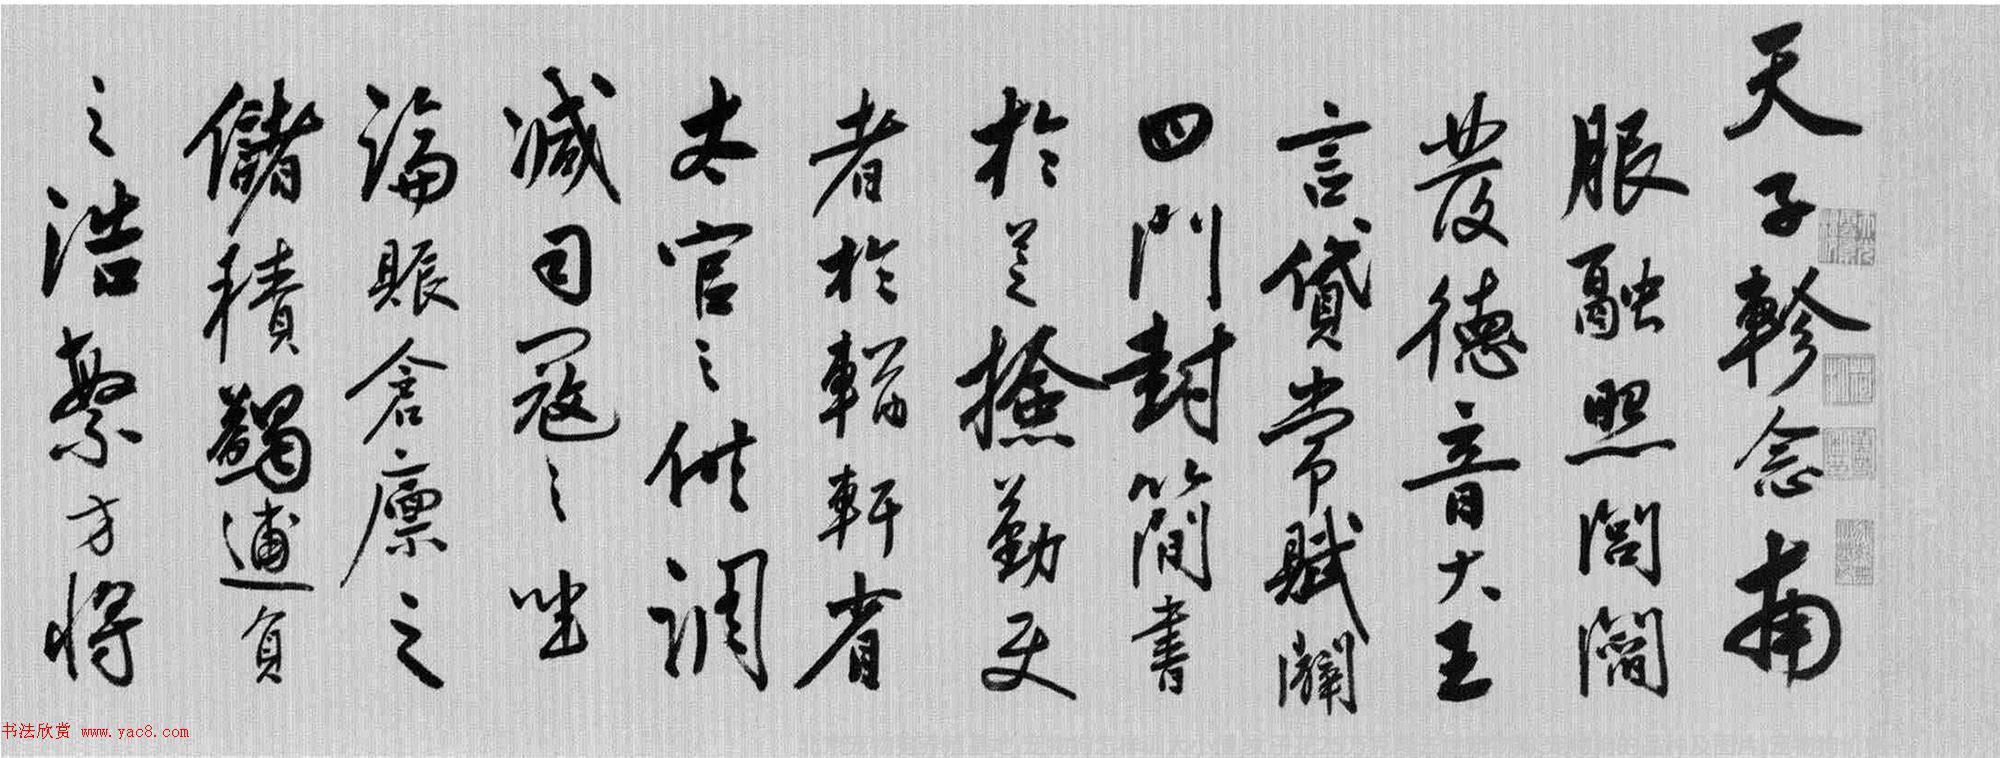 天子軫念南
服融照闾簡
發德音大王
言貸常賦闢
四門封簡書
於是撿勤吏
者於輶軒省
太官之供調
減司寇之
論賑倉廪之
儲積蠲逋負
之浩繁方將
书法欣赏 www.yac8.com